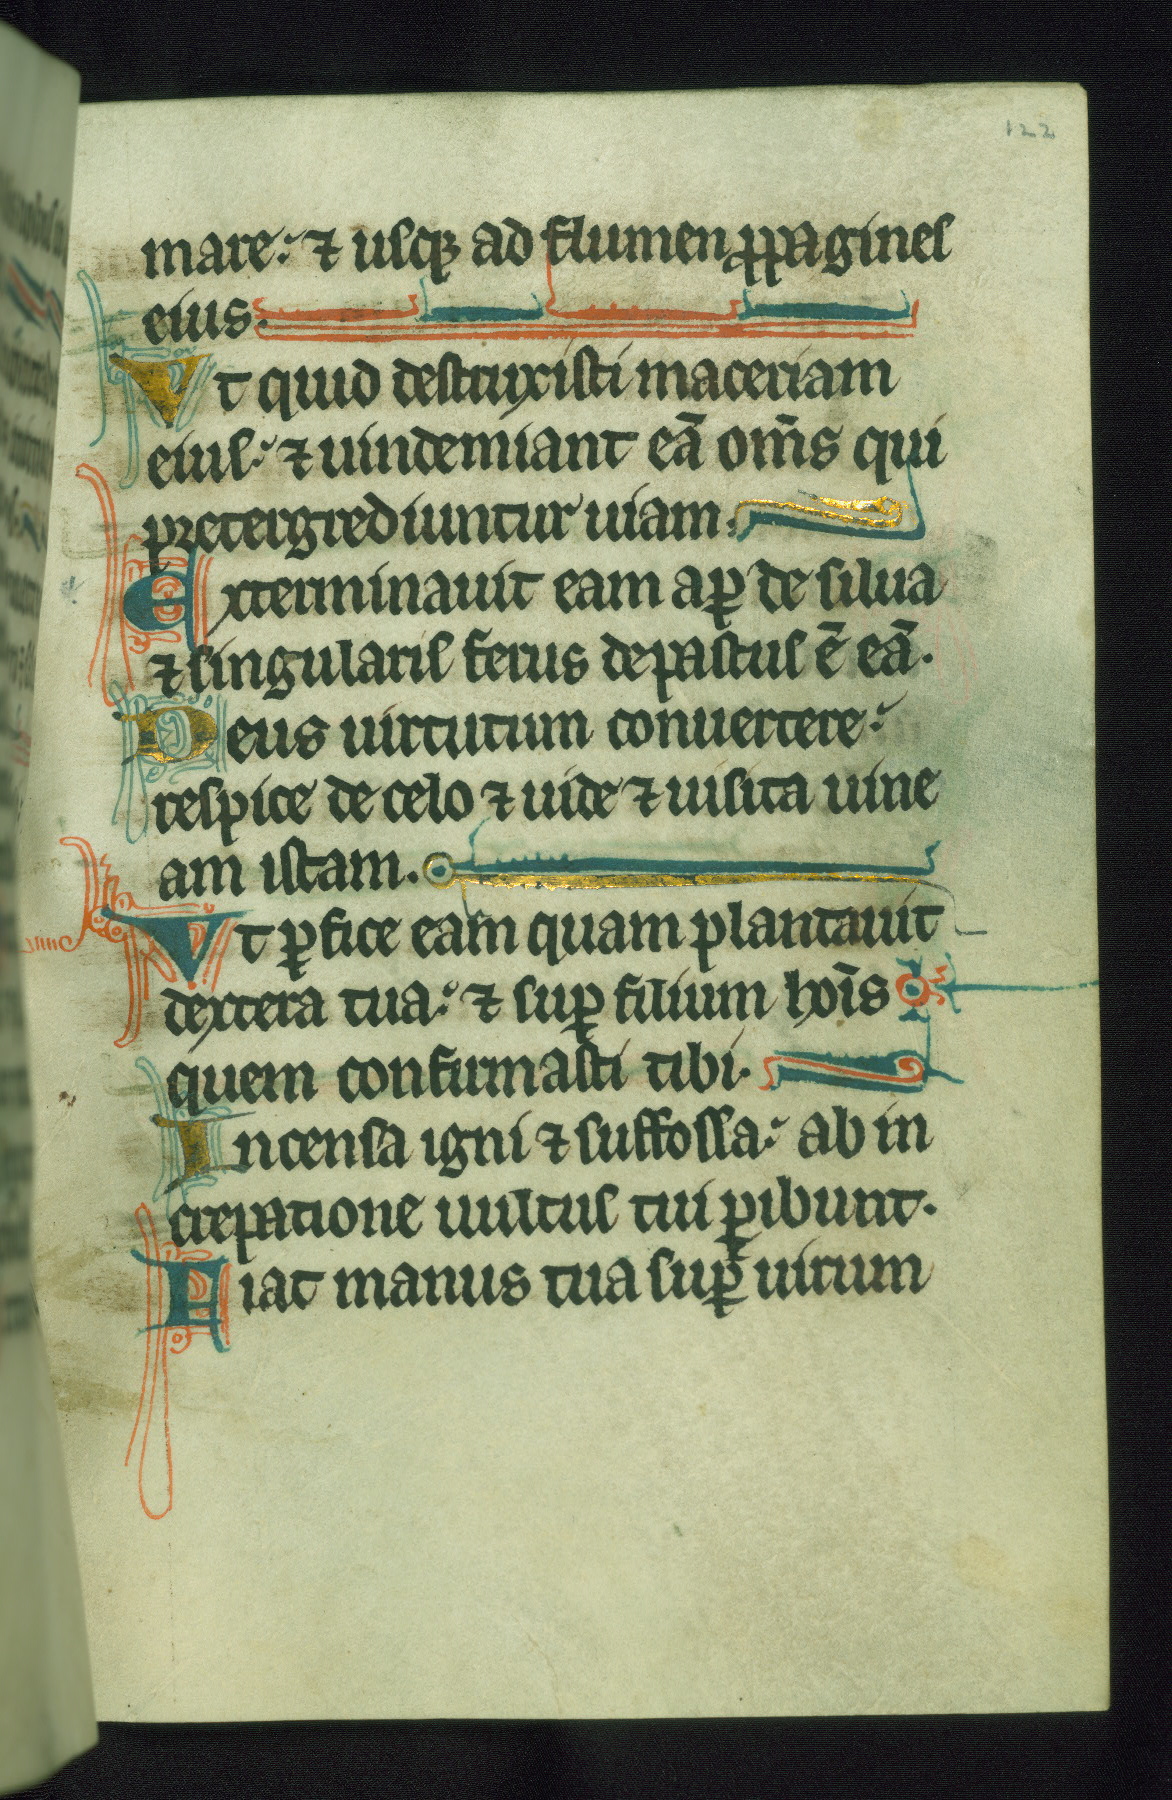 122
mare: ⁊ usqꝫ ad flumen ꝓpagines
eius.
Ut quid destruxisti maceriam
eius: ⁊ uindemiant eā om̄s qui
pretergrediuntur uiam.
Exterminauit eam aꝑ de silua
⁊ singularis ferus depastus ē eā.
Deus uirtutum conuertere:
respice de celo ⁊ uide ⁊ uisita uine
am istam.
Ut ꝑfice eam quam plantauit
dextera tua: ⁊ suꝑ filium hoīs
quem confirmasti tibi.
Incensa igni ⁊ suffossa: ab in
crepatione uultus tui ꝑibunt.
Fiat manus tua suꝑ uirum